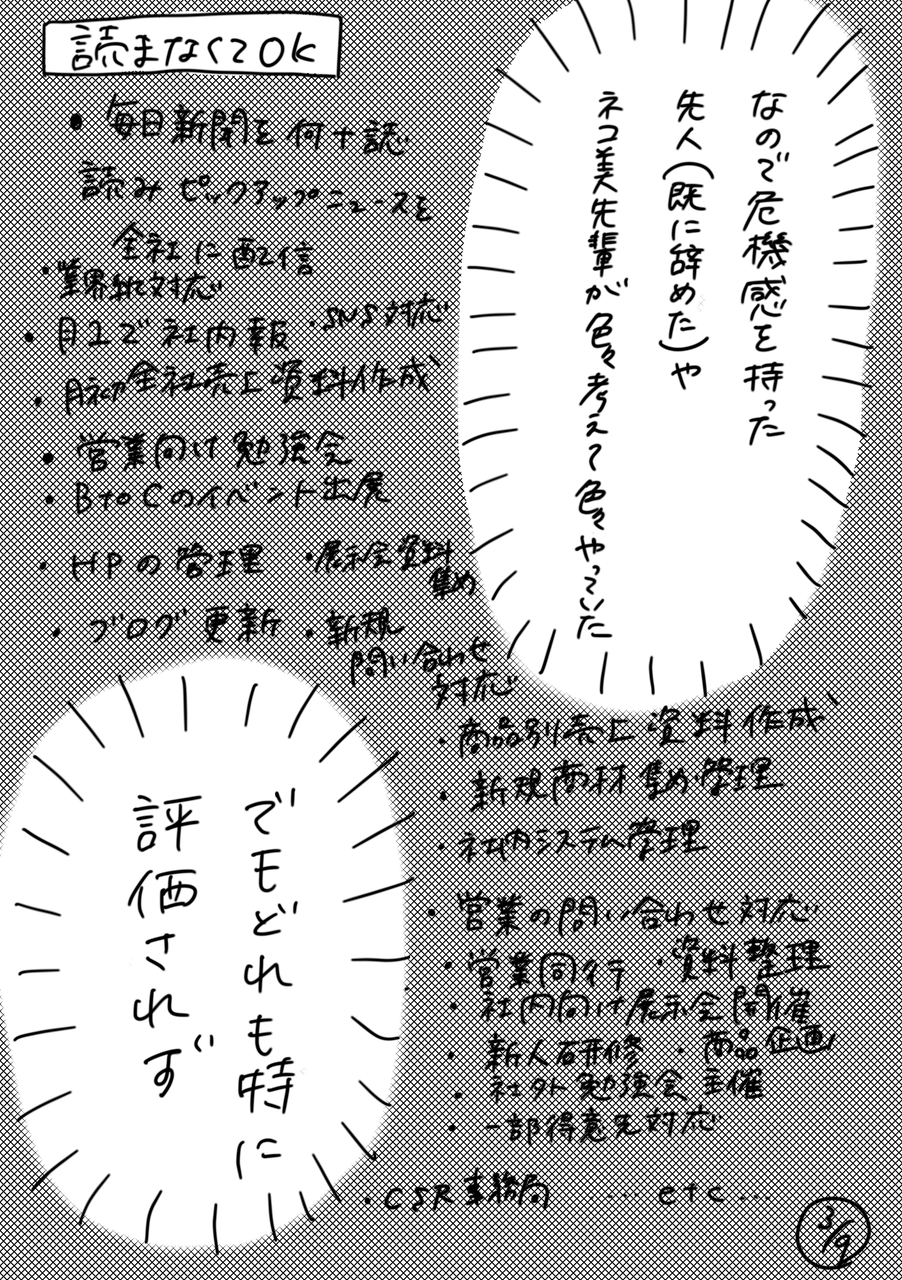 なので危機感を持った
先人(既に辞めた)や
ネコ美先輩が色々考えて色々やっていた
読まなくてOK
・毎日新聞を何十誌
読みピックアップニュースを
全社に配信
・業界紙対応
・月1で社内報
・SNS対応
・月初全社売上資料作成
・営業向け勉強会
・BtoCのイベント出展
・HPの管理
・展示会資料
集め
・ブログ更新
・新規
問い合わせ
対応
・商品別売上資料作成
・新規商材集め・管理
・社内システム管理
・営業の問い合わせ対応
・営業同行
・資料整理
・社内向け展示会開催
・新人研修
・商品企画
・社外勉強会主催
・一部得意先対応
・CSR事務局
…etc…
でもどれも特に
評価されず
3/9